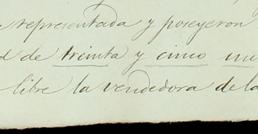 representada y poseyeron
d de treinta y cinco
libre la vendedora de la